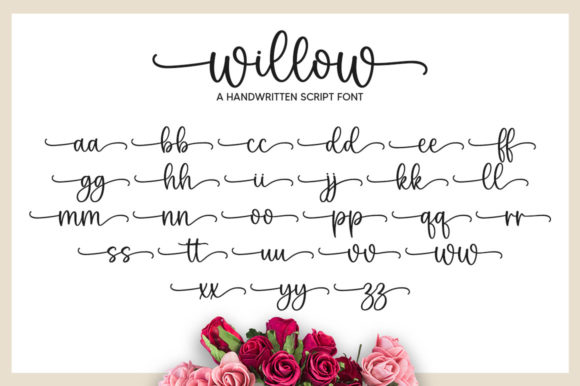 willow
A HANDWRITTEN SCRIPT FONT
aa bb cc dd ee ff
gg hh ii jj kk ll
mm nn oo pp qq rr
ss tt uu vv ww
xx yy zz